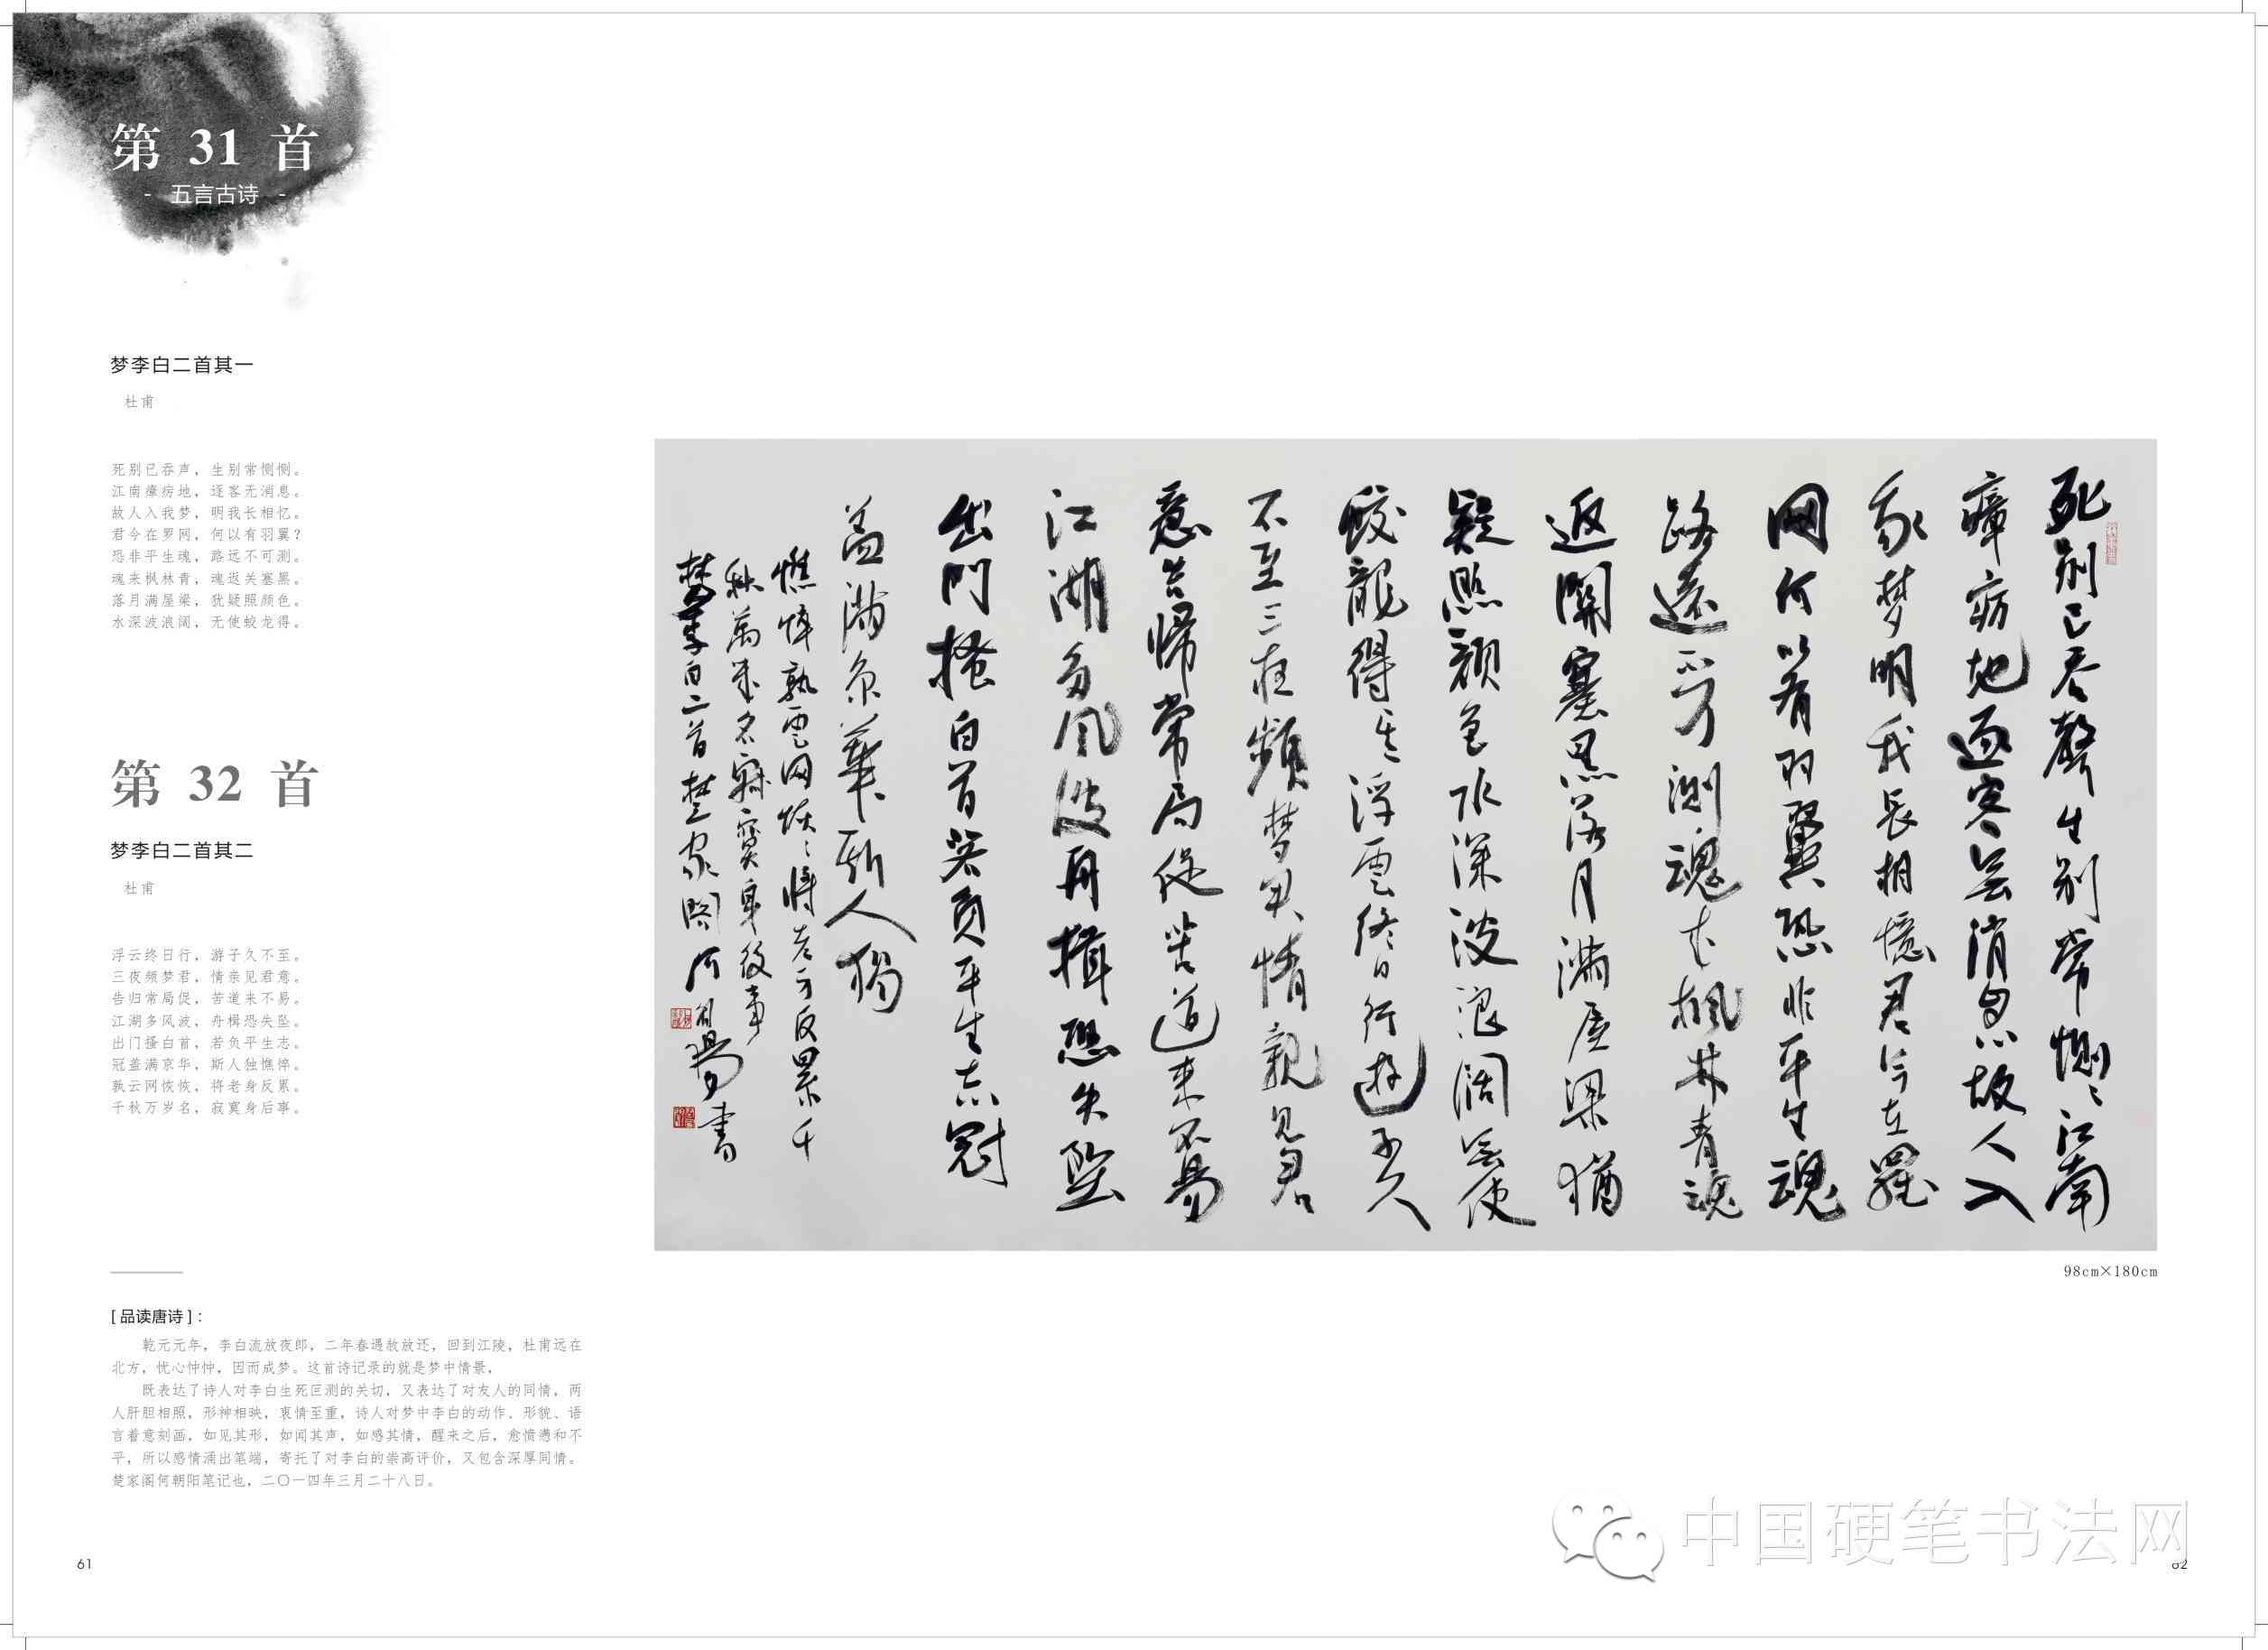 第 31 首
- 五言古诗 -
梦李白二首其一
杜甫
死别已吞声，生别常恻恻。
江南瘴疠地，逐客无消息。
故人入我梦，明我长相忆。
君今在罗网，何以有羽翼？
恐非平生魂，路远不可测。
魂来枫林青，魂返关塞黑。
落月满屋梁，犹疑照颜色。
水深波浪阔，无使蛟龙得。
第 32 首
梦李白二首其二
杜甫
浮云终日行，游子久不至。
三夜频梦君，情亲见君意。
告归常局促，苦道来不易。
江湖多风波，舟楫恐失坠。
出门搔白首，若负平生志。
冠盖满京华，斯人独憔悴。
孰云网恢恢，将老身反累。
千秋万岁名，寂寞身后事。
[ 品读唐诗 ]：
乾元元年，李白流放夜郎，二年春遇赦放还，回到江陵，杜甫远在
北方，忧心忡忡，因而成梦。这首诗记录的就是梦中情景，
既表达了诗人对李白生死叵测的关切，又表达了对友人的同情，两
人肝胆相照，形神相映，衷情至重，诗人对梦中李白的动作、形貌、语
言着意刻画，如见其形，如闻其声，如感其情，醒来之后，愈愤懑和不
平，所以感情涌出笔端，寄托了对李白的崇高评价，又包含深厚同情。
楚家阁何朝阳笔记也，二〇一四年三月二十八日。
61
死别已吞聲生别常恻〻江南
瘴疠地逐客無消息故人入
我梦明我長相憶君今在羅
网何以有羽翼恐非平生魂
路遠不可测魂来枫林青魂
返關塞黑落月满屋梁猶
疑照颜色水深波浪阔無使
蛟龍得浮雲终日行遊子久
不至三夜频梦君情親見君
意告歸常局促苦道来不易
江湖多风波舟楫恐失坠
出門搔白首若負平生志冠
盖满京華斯人獨
憔悴孰雲网恢〻将老身反累千
秋萬岁名寂寞身後事
梦李白二首楚家閣何朝陽書
98cm×180cm
中国硬笔书法网
62